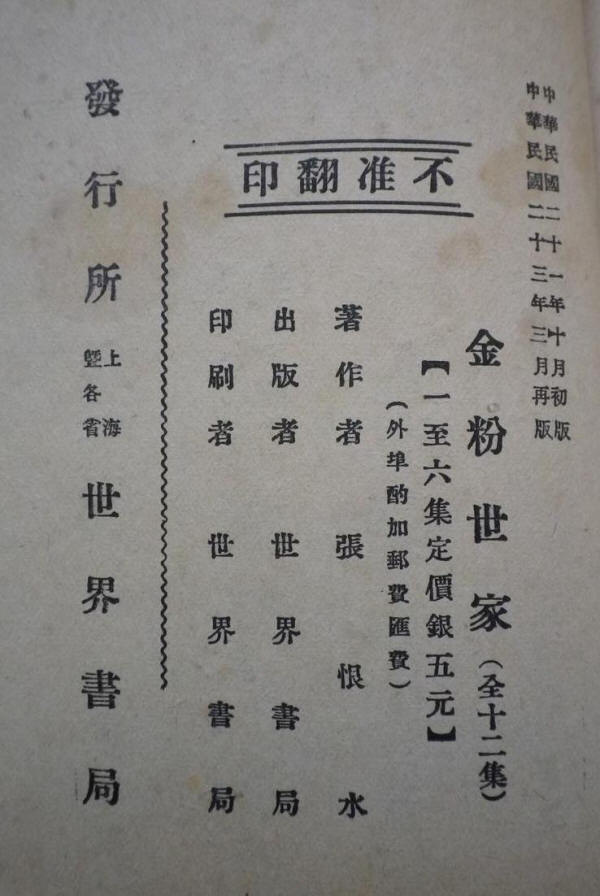 中華民國二十一年十月初版
中華民國二十三年三月再版
金粉世家（全十二集）
【一至六集定價銀五元】
（外埠酌加郵費匯費）
不准翻印
著作者 張恨水
出版者 世界書局
印刷者 世界書局
發行所 上海暨各省 世界書局